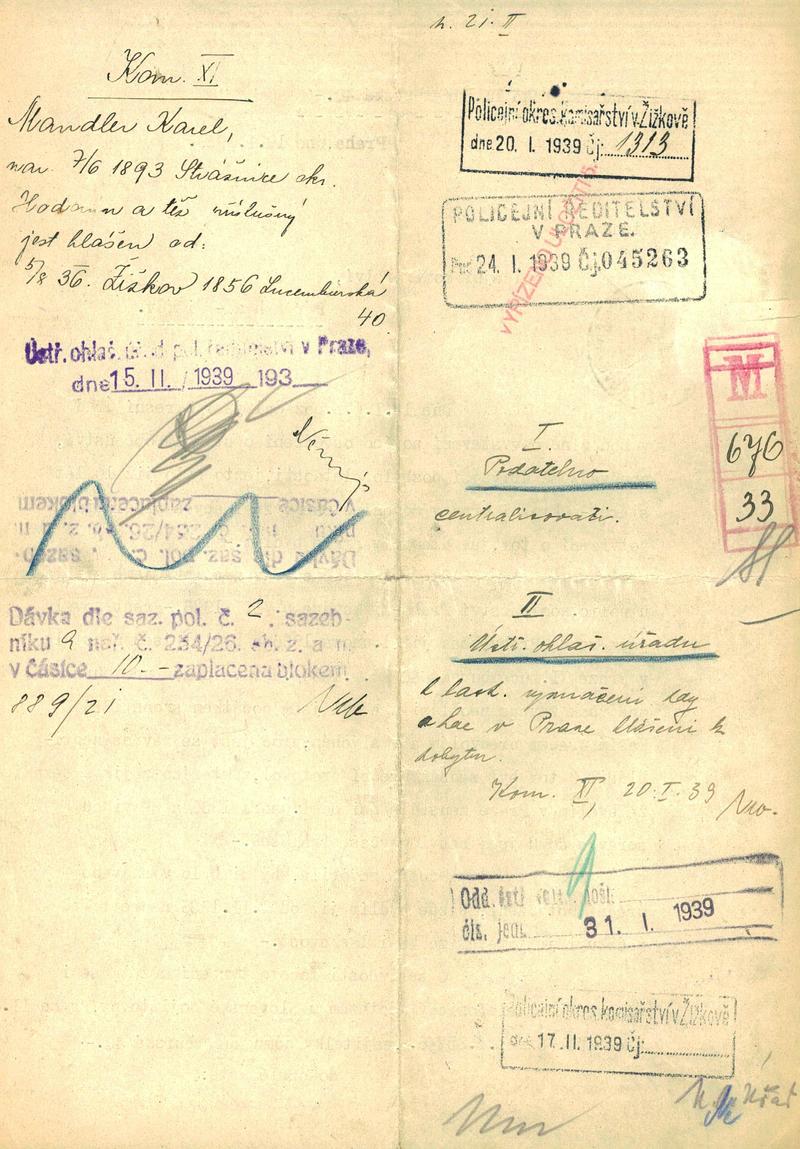 Kom. XI
Mandler Karel,
nar. 7/6 1893 Strážnice okr.
Hodonín a též příslušný
jest hlášen od:
5/8 36. Žižkov 1856 Lucemburská
40
Ústř. ohlaš. úřad pol. ředitelství v Praze,
dne 15. II. 1939 193
Dávka dle saz. pol. č. 2. sazeb-
níku a nař. č. 254/26. sb. z. a n.
v částce 10.- zaplacena blokem
889/21
h. 21. II
Policejní okres. komisařství v Žižkově
dne 20. I. 1939 Čj. 1313
POLICEJNÍ ŘEDITELSTVÍ
V PRAZE.
24. I. 1939 Čj. 045263
VYŘÍZENO
M
676
33
I.
centralisovati.
II
Ústř. ohlaš. úřadu
k lask. vyznačení
v Praze hlášen k
pobytu.
Kom. XI, 20.I.39
Odd.
čís. jed. 31. I. 1939
Policejní okres. komisařství v Žižkově
dne 17. II. 1939 Čj.